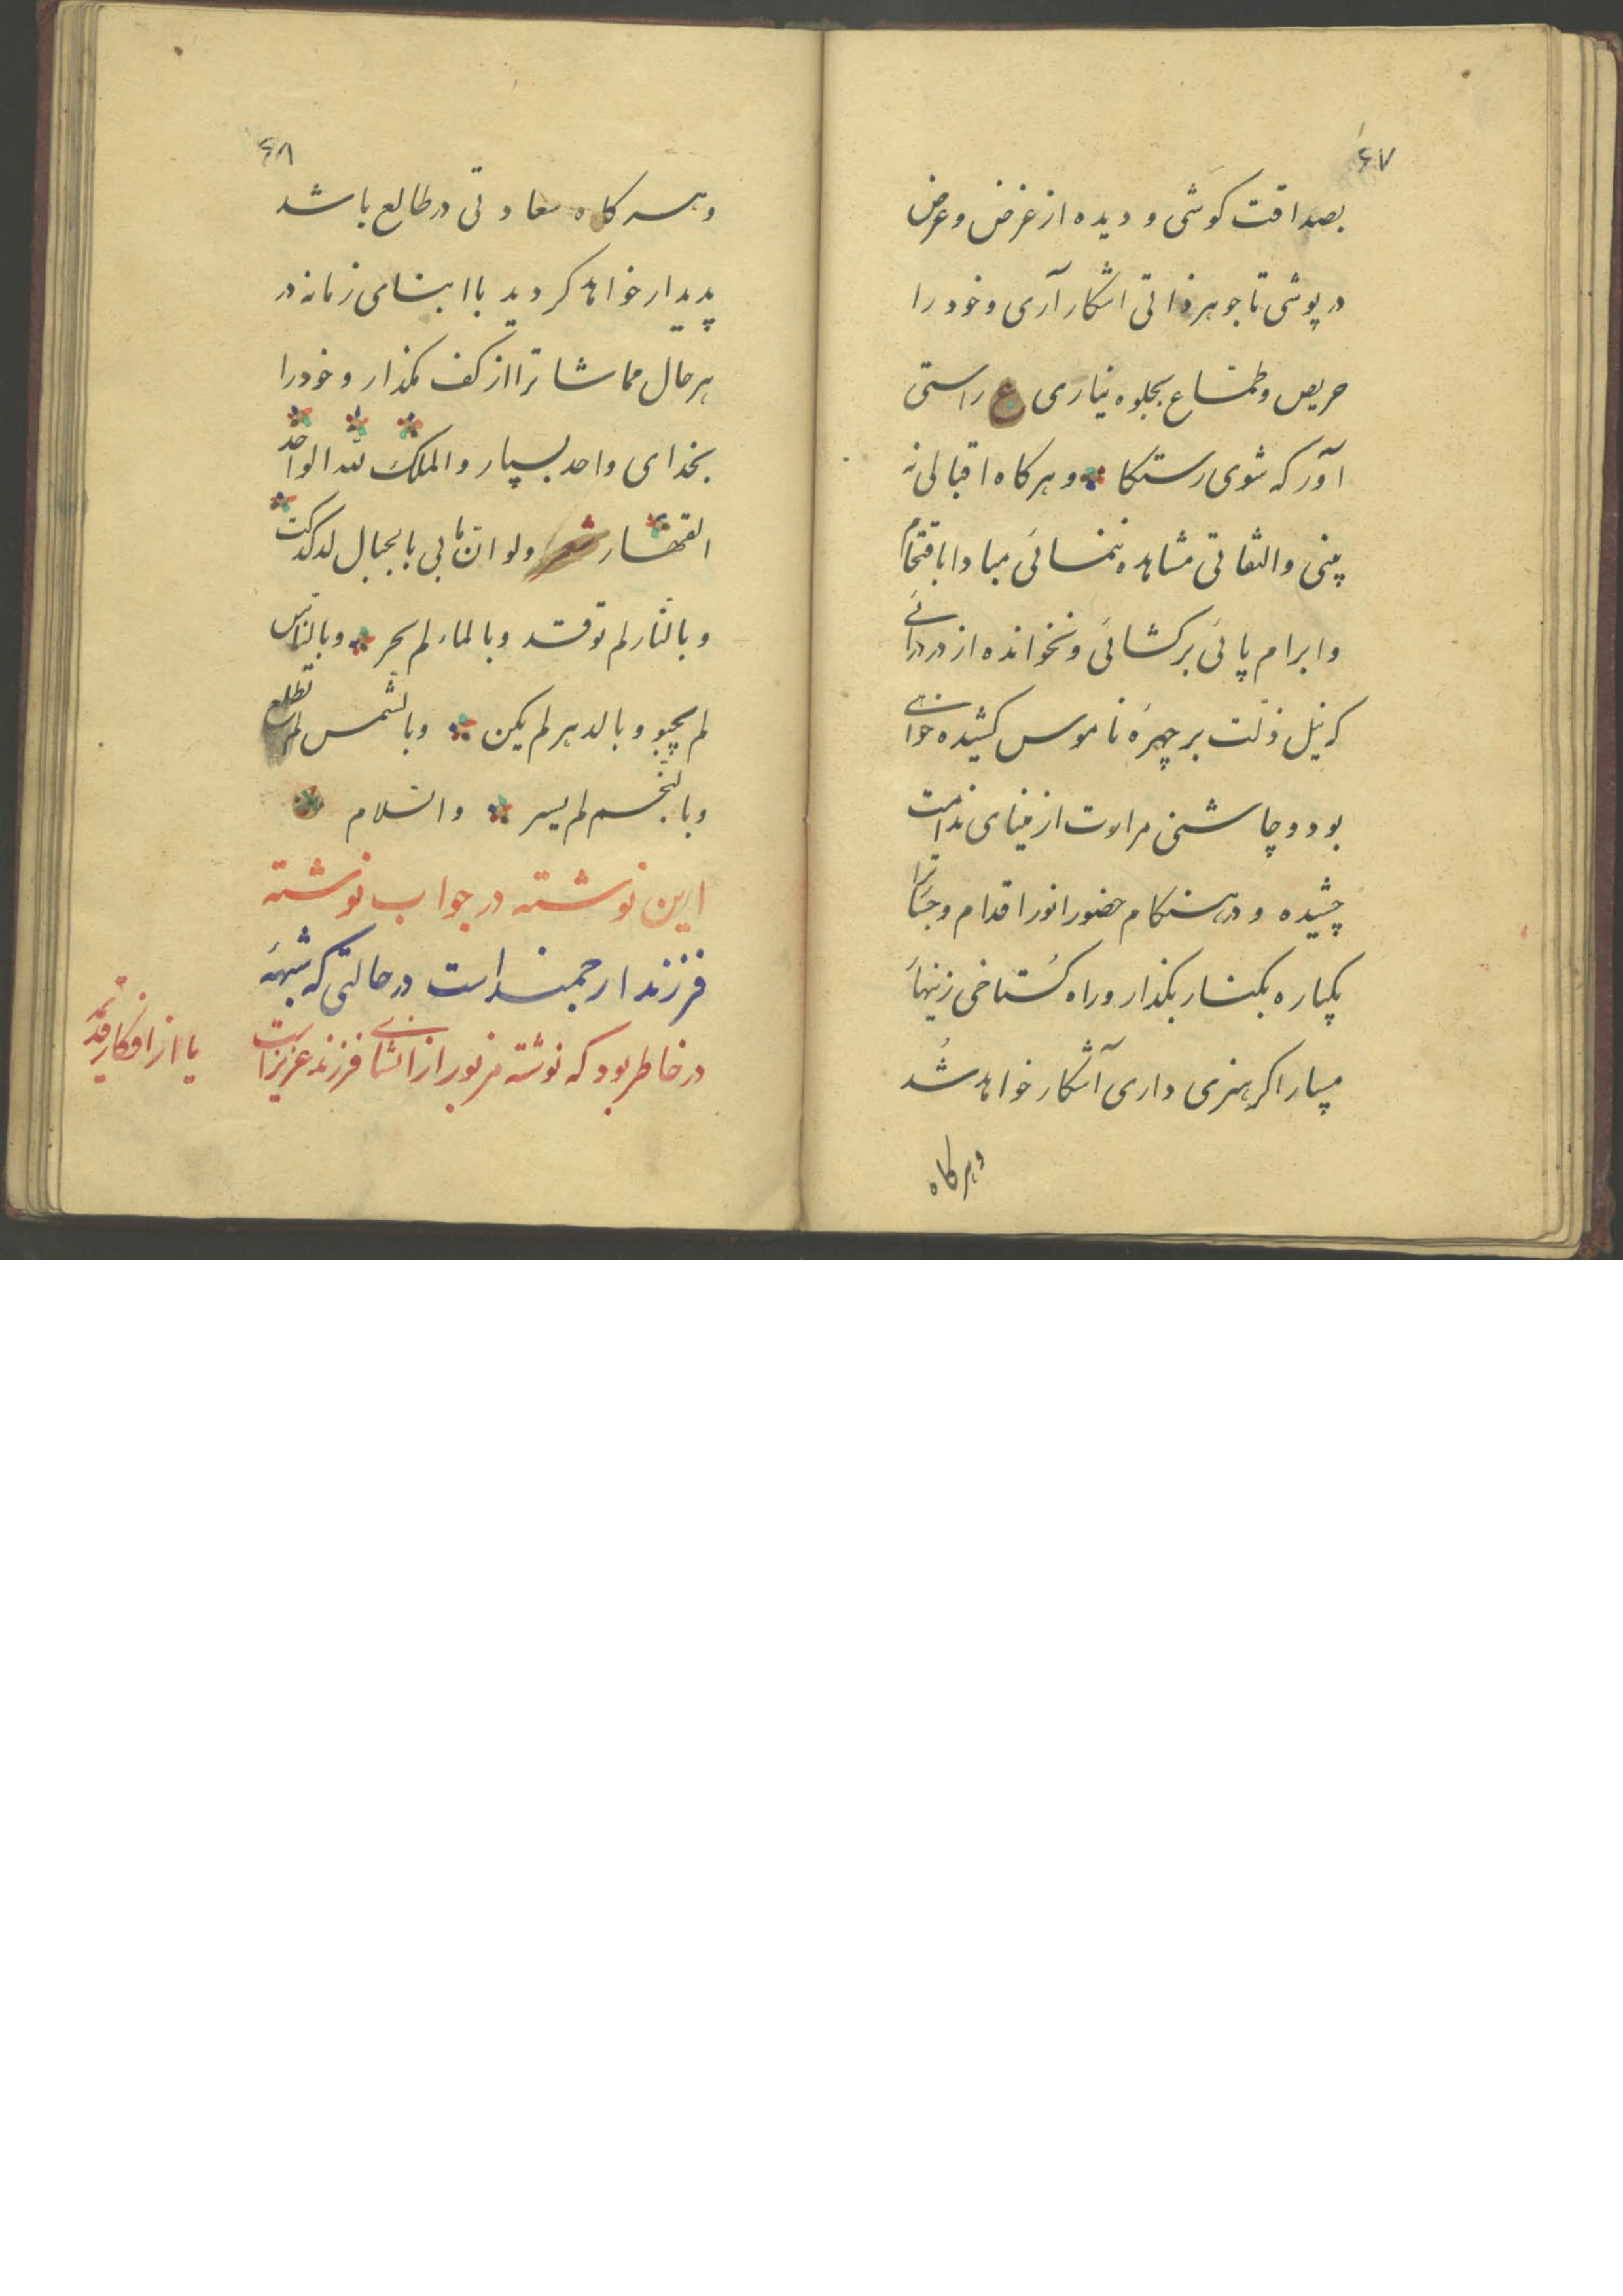 ۶۷
بصداقت کوشی و دیده از غرض و عرض
در پوشی تا جوهر ذاتی اشکار آری و خود را
حریص و طماع بجلوه نیاری ع راستی
آور که شوی رستکا و هرکاه اقبالی نه
بینی و التفاتی مشاهده ننمائی مبادا باقتحام
و ابرام پائی برکشائی و نخوانده از در درائی
که نیل ذلت بر چهرهٔ ناموس کشیده خواهی
بود و چاشنی مرارت از مینای ندامت
چشیده و در هنکام حضور انور اقدام و جسارترا
یکباره بکنار بکذار و راه کستاخی زینهار
مسپار اکر هنری داری آشکار خواهد شد
وهرکاه
۶۸
و هرکاه سعادتی در طالع باشد
پدیدار خواهد کردید با ابنای زمانه در
هر حال مماشاترا از کف مکذار و خود را
بخدای واحد بسپار و الملک لله الواحد
القهار شعر ولو ان ما بی بالجبال لدکدکت
و بالنار لم توقد و بالماء لم یجر و بالناس
لم یحیو و بالدهر لم یکن و بالشمس لم تطلع
و بالنجم لم یسر والسلام
این نوشته در جواب نوشته
فرزند ارجمند است در حالتی که شبهه
در خاطر بود که نوشته مزبور از انشای فرزند عزیز است
یا از افکار قدیمه